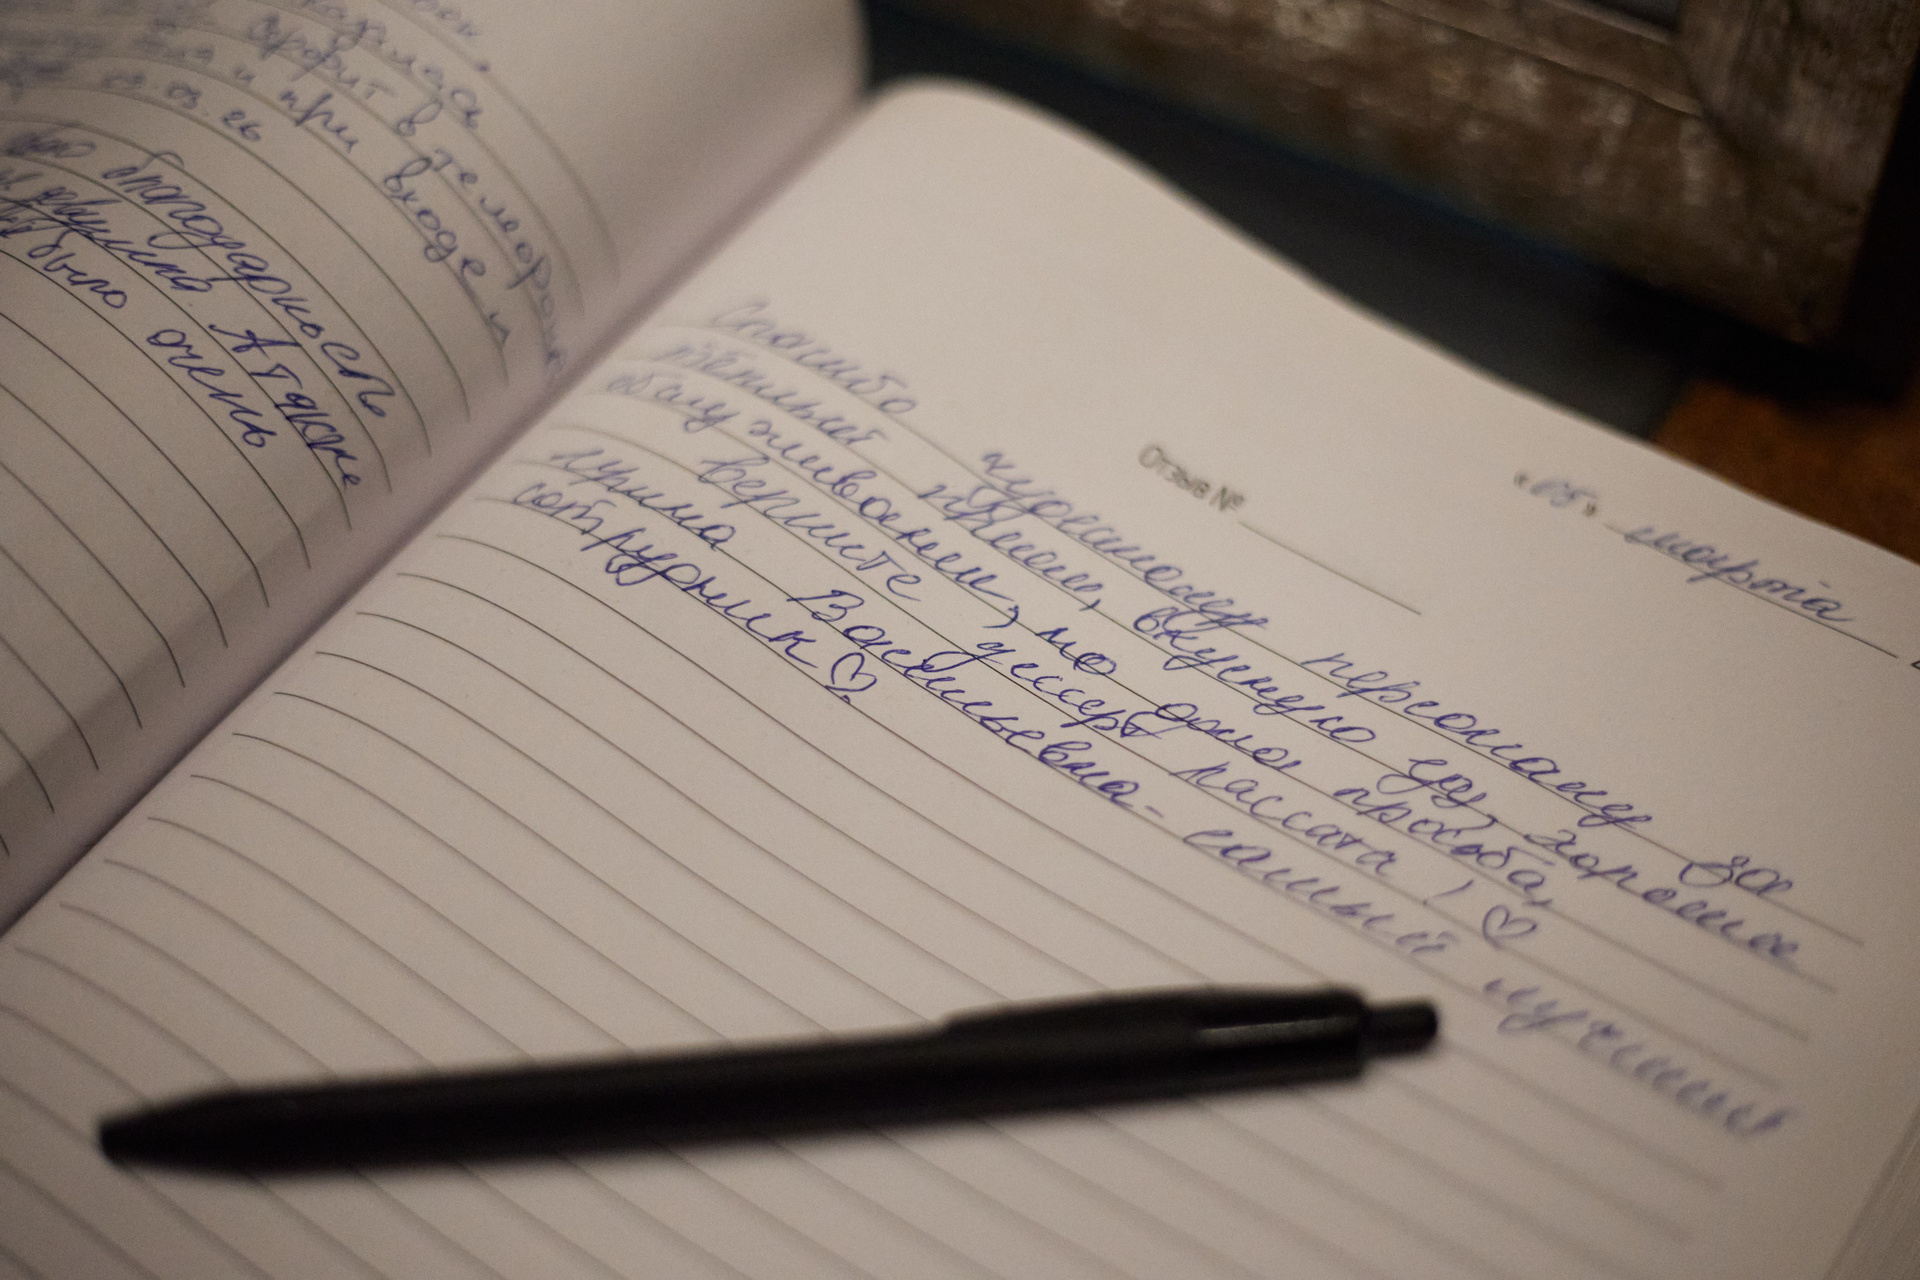 скорбит в телефоне
и при входе и
03.03.26
благодарность
А также
было очень
Отзыв №
«05» марта
Спасибо чудесному персоналу за
тёплый приём, вкусную еду, хорошее
обслуживание, но одна просьба,
верните десерт пассата! ♡
Ирина Васильевна - самый лучший
сотрудник ♡